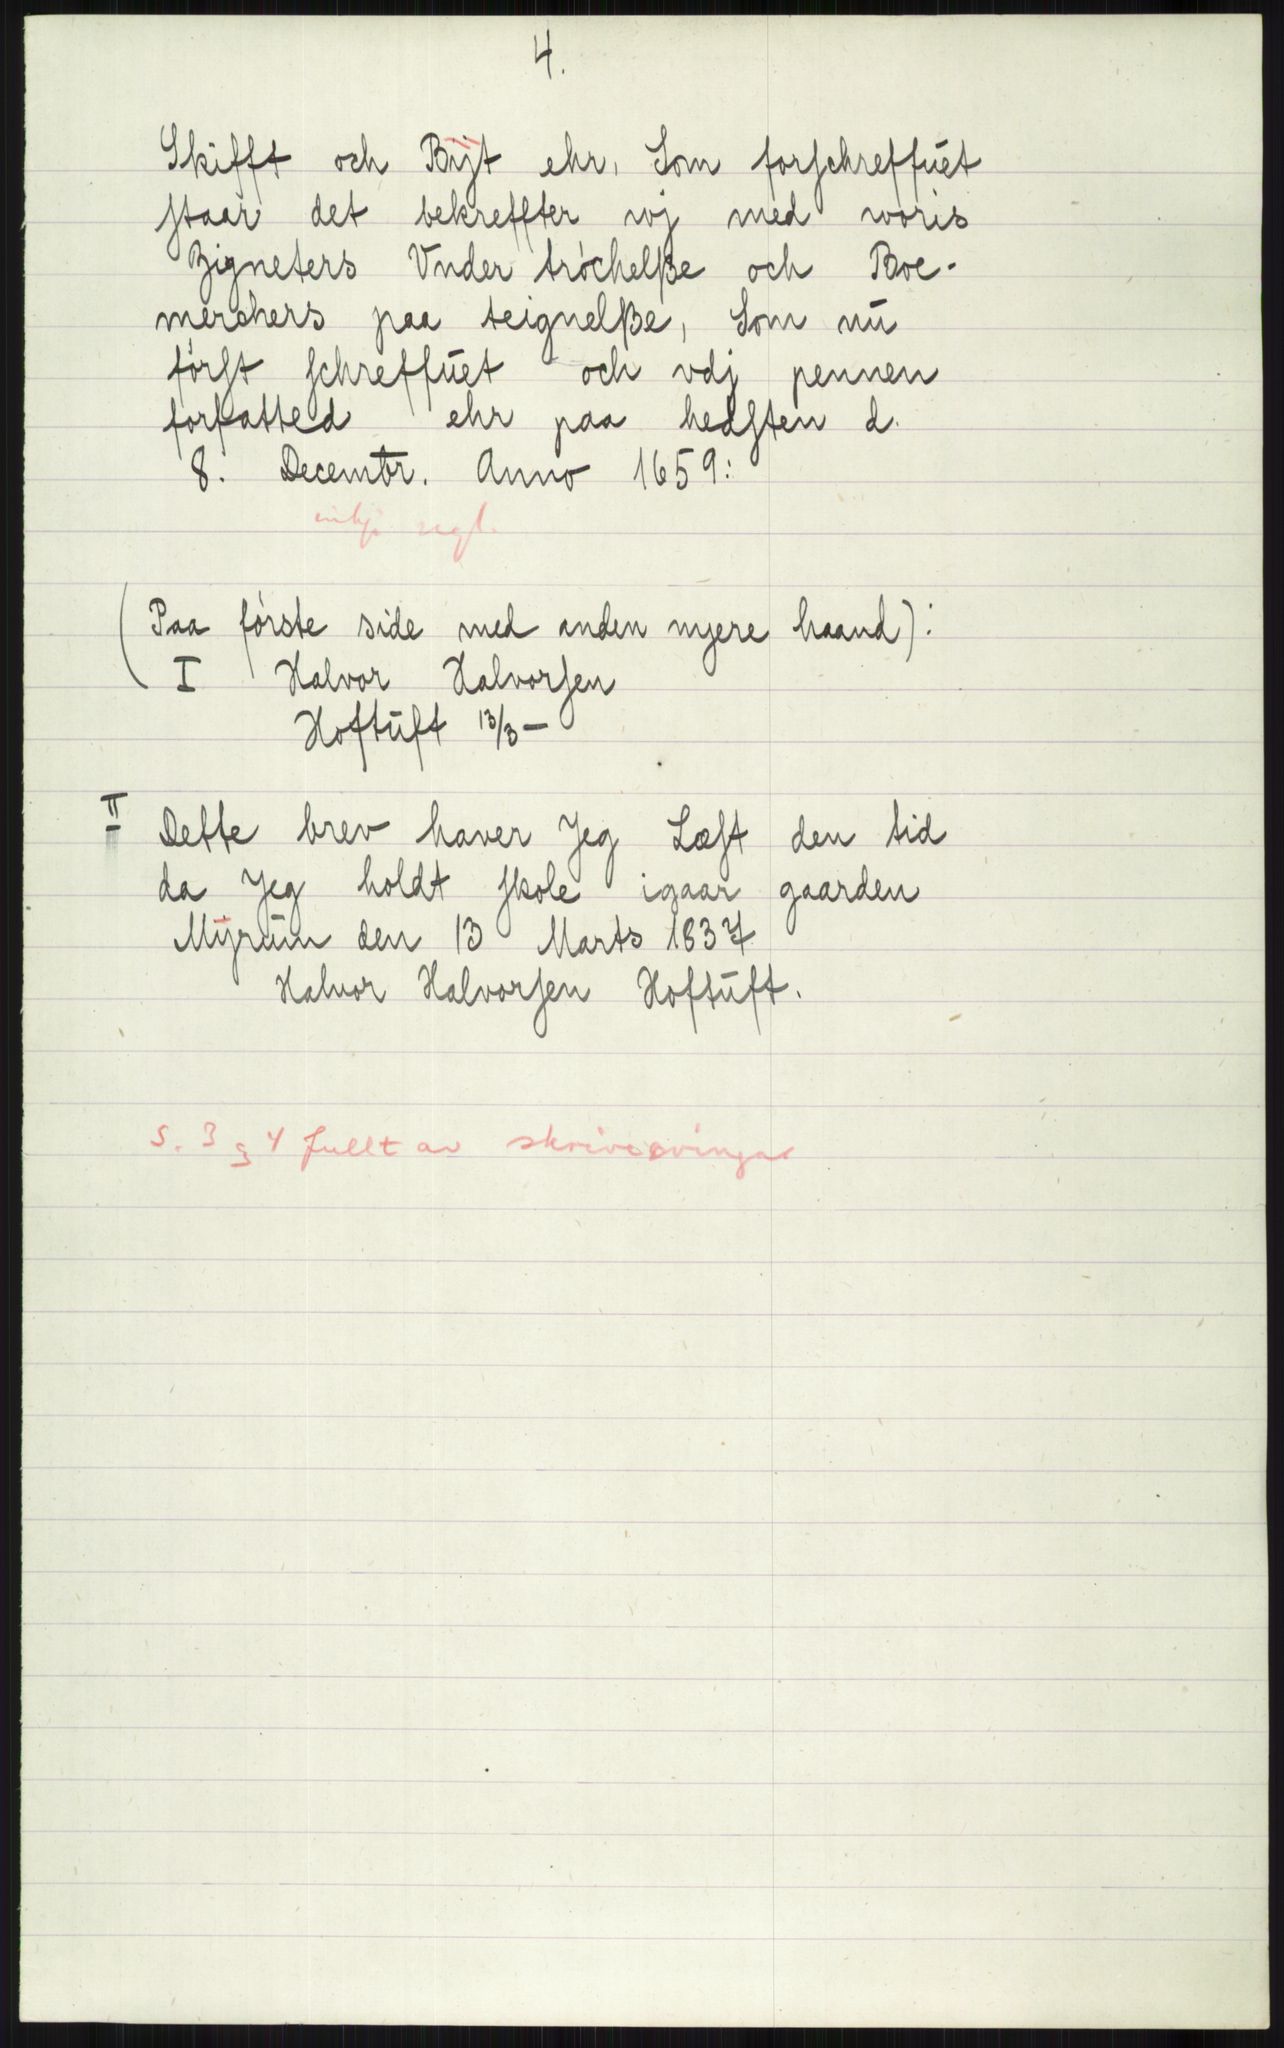 4.
Skifft och Bÿt ehr, Som forschreffuet
staar det bekreffter wj med woris
Zigneters Vnder trόchelße och Boe-
merchers paa teignelße, Som nu
fόrst schreffuet och vdj pennen
forfatted ehr paa hedsten d.
8. Decembr. Anno 1659:
(Paa fόrste side med anden nyere haand):
I Halvor Halvorsen
Hoftuft 13/3 –
II Dette brev haver Jeg Læst den tid
da Jeg holdt skole igaar gaarden
Mÿrum den 13 Marts 1837
Halvor Halvorsen Hoftuft.
s. 3 g 4 fullt av skriveøvingar